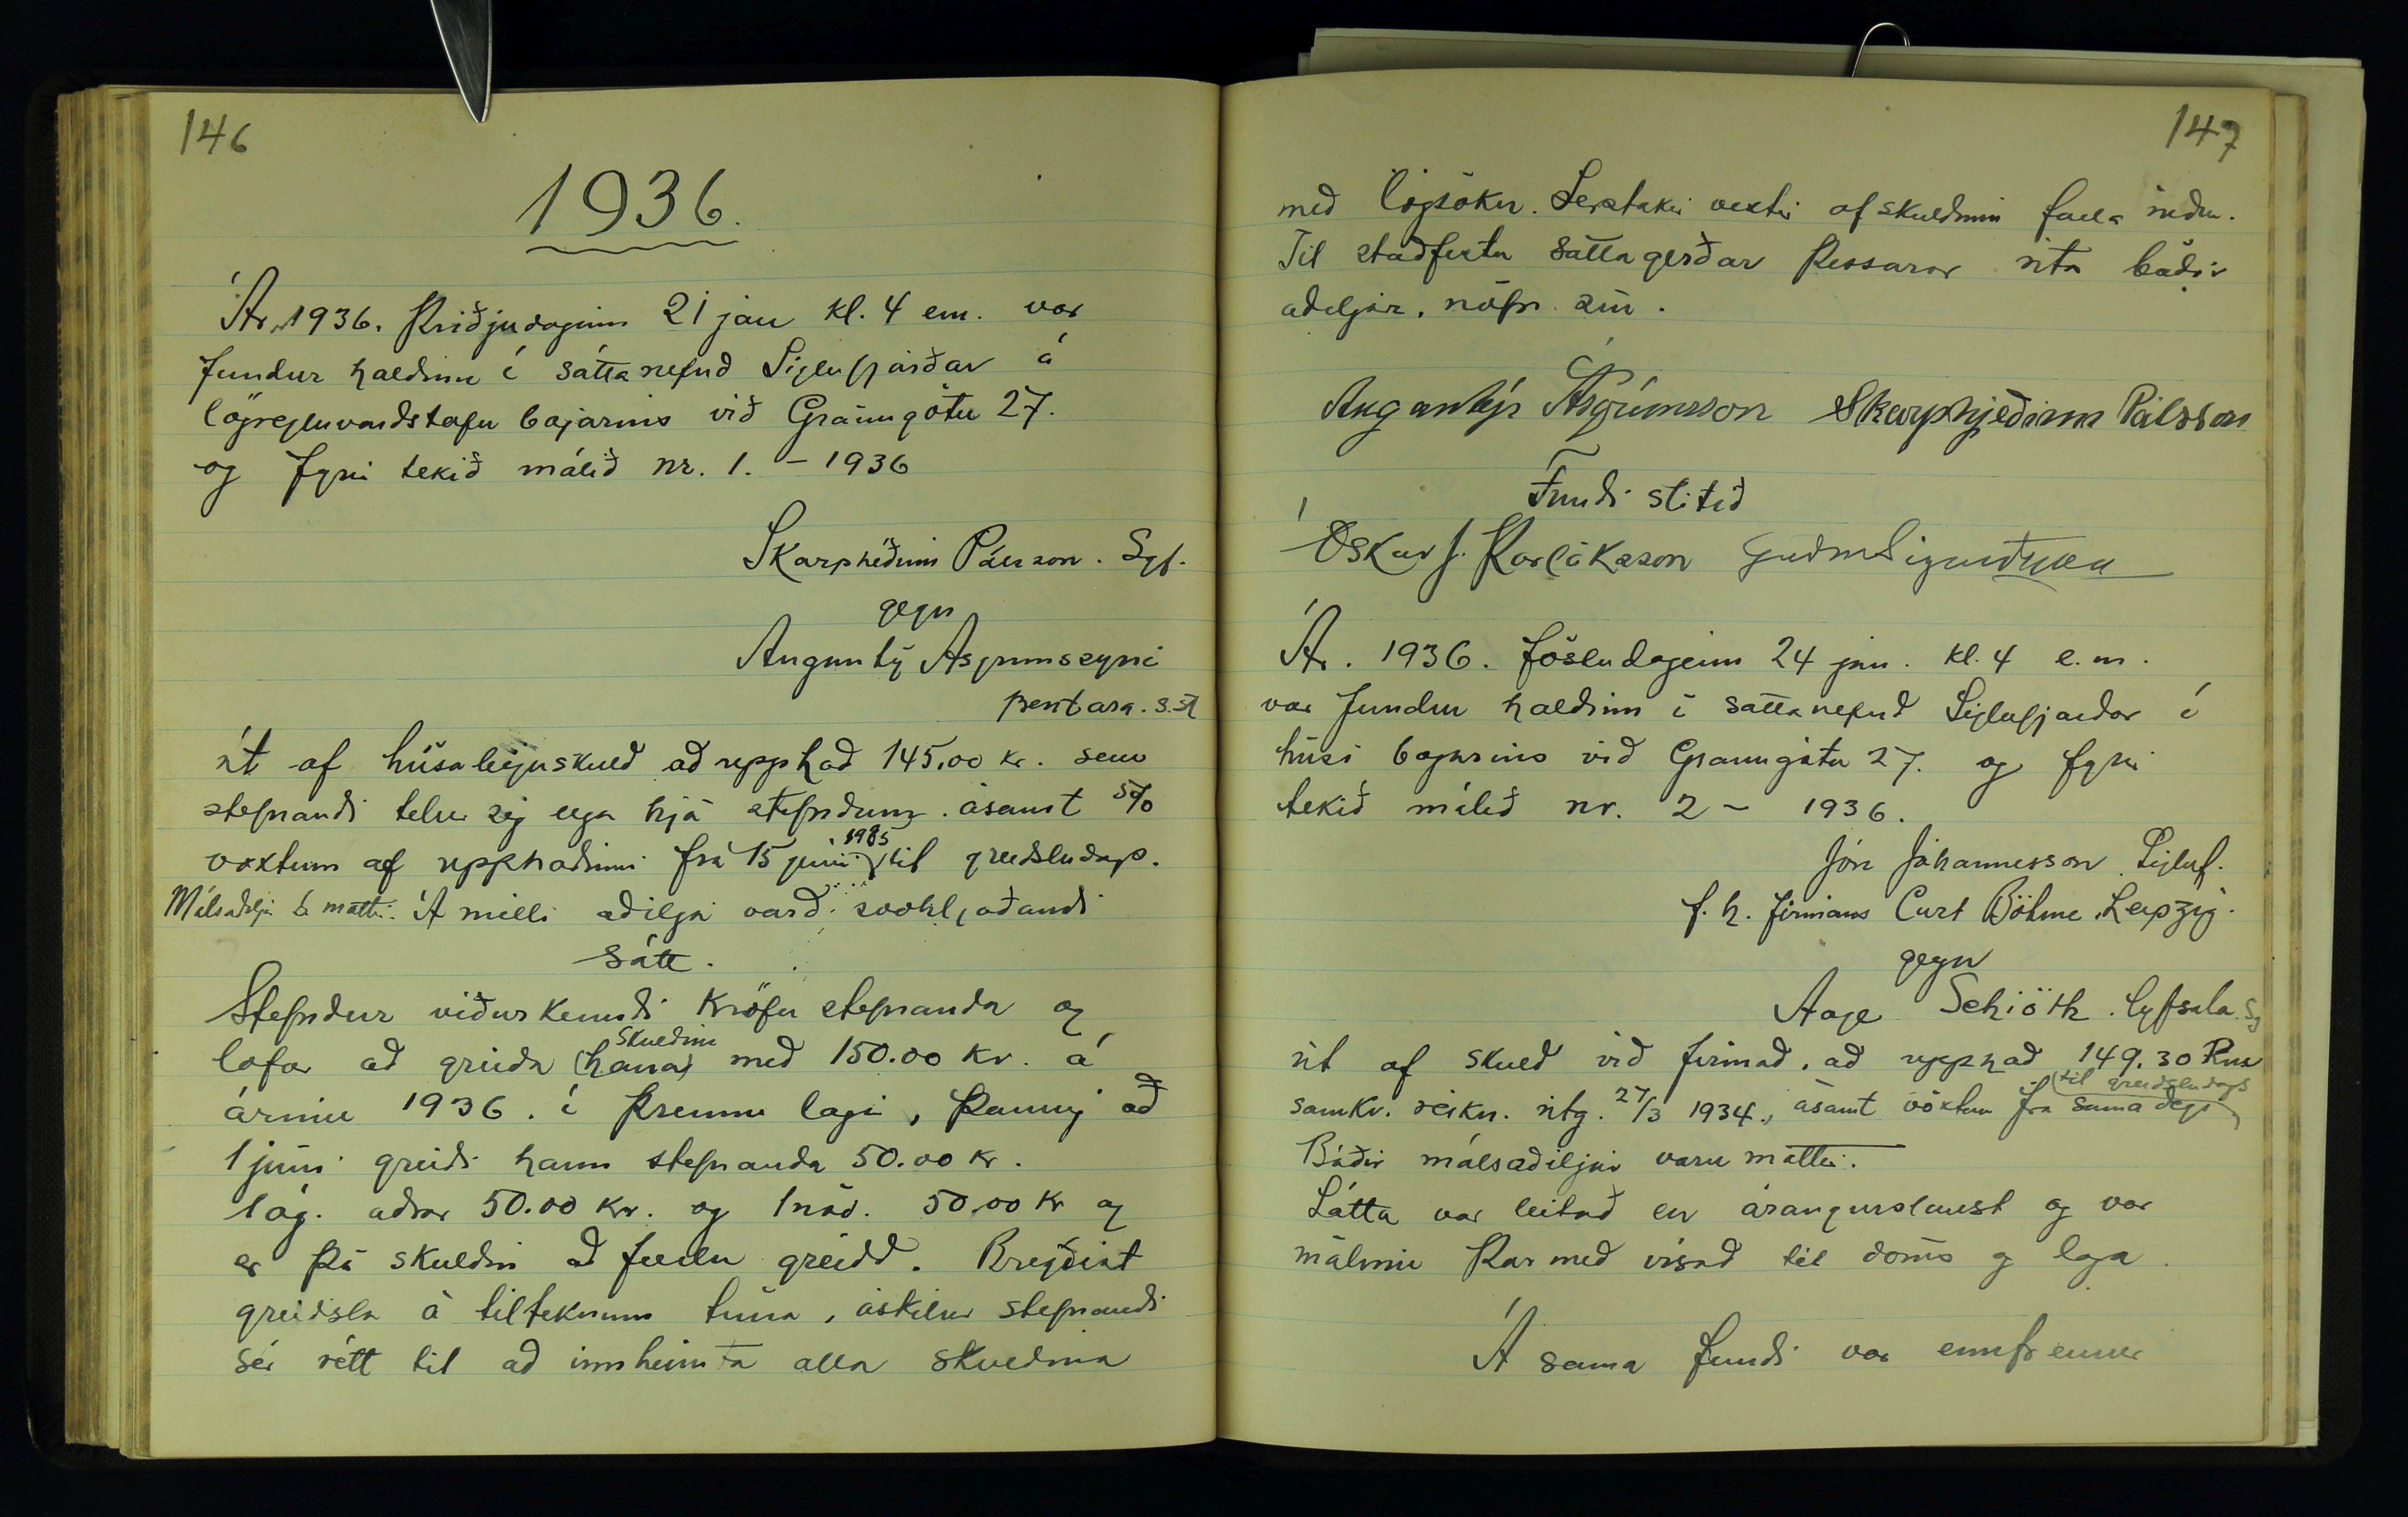 146
1936.
Ár, 1936. Þriðjudaginn 21 jan kl. 4 em. var
fundur haldinn í sáttanefnd Siglufjarðar á
lögregluvarðstofu bæjarins við Gránugötu 27.
og fyrir tekið málið nr. 1. - 1936
Skarphéðinn Pálsson. Sgf.
gegn
Angantý Ásgrímssyni
pentara. s.st
út af húsaleiguskuld að upphæð 145,00 kr. sem
stefnandi telur sig eiga hjá stefndum. ásamt 5%
vöxtum af upphæðinni frá 15 júní 1935 til greiðsludags.
Málsaðiljar b. mættir. Á milli aðilja varð svohljóðandi
sátt.
Stefndur viðurkenndi kröfu stefnanda og
lofar að greiða (hana) skuldina með 150.00 kr. á
árinu 1936. í þrennu lagi, þannig að
1 júní greiði hann stefnanda 50.00 kr.
1 ág. aðrar 50.00 kr. og 1 nóv. 50,00 kr og
er þá skuldin að fullu greidd. Bregðist
greiðsla á tilteknum tíma, áskilur stefnandi
sér rétt til að innheimta alla skuldina
147
með lögsókn. Sérstakir vextir af skuldinni falla niður.
Til staðfestu sáttagerðar þessarar rita báðir
aðiljar. nöfn sín.
Angantýr Ásgrímsson Skarphjeðinn Pálsson
Fundi slitið
Óskar J. Þorláksson GuðmSigurðsson
Ár. 1936. föstudaginn 24 jan. kl. 4 e.m.
var fundur haldinn í sáttanefnd Siglufjarðar í
húsi bæjarins við Gránugötu 27. og fyrir
tekið málið nr. 2 - 1936.
Jón Jóhannesson Sigluf.
f. h. firmans Curt Böhme, Leipzig.
gegn
Aage Schiöth. lyfsala. Sg
út af skuld við firmað. að upphæð 149.30 Rm
samkv. reikn. útg. 27/3 1934., ásamt vöxtum frá sama degi (til greiðsludags
Báðir málsaðiljar voru mættir.
Sátta var leitað en árangurslaust og var
málinu þar með vísað til dóms og laga.
Á sama fundi var ennfremur